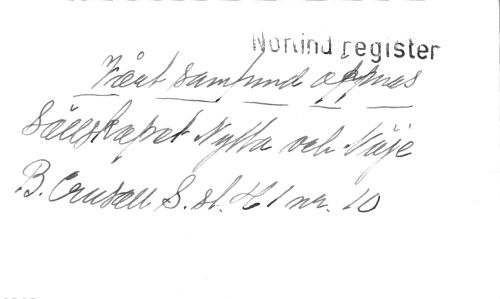 Norlind register
Vårt samfund öppnas
Sällskapet Nytta och Nöje
B. Crusell S. st. H 1 nr. 10